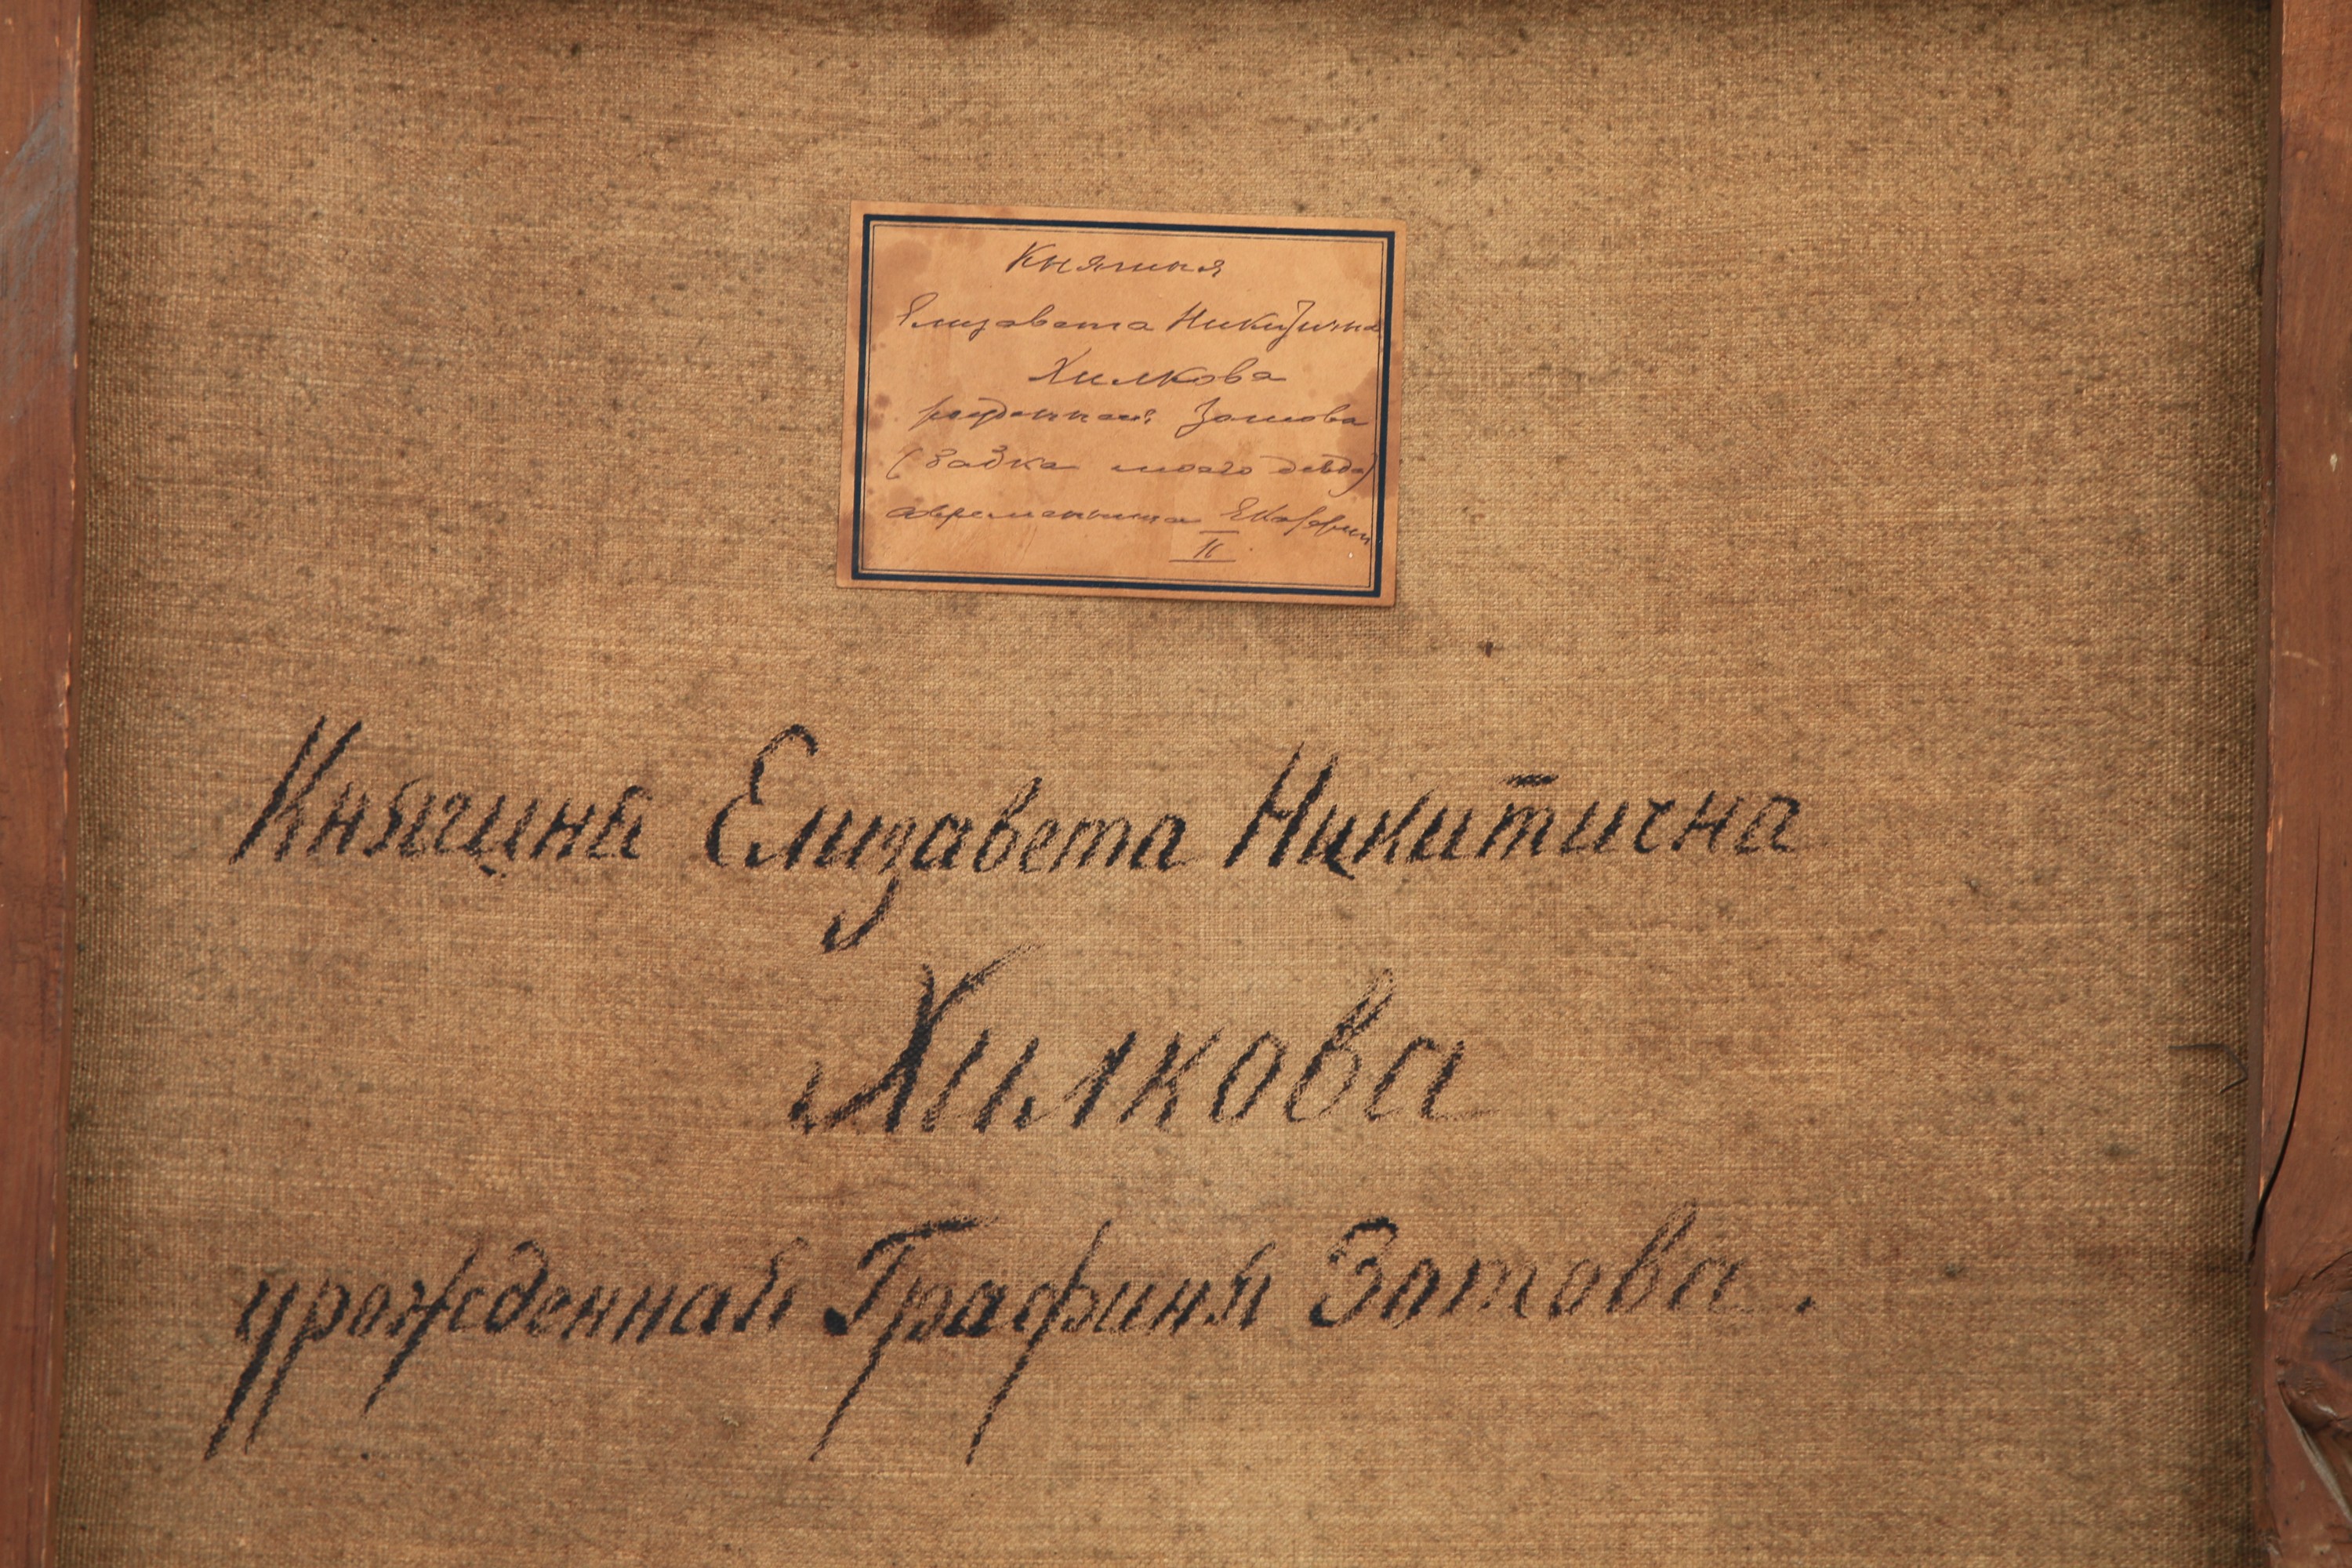 Княгиня
Елизавета Никитична
Хилкова
рожденная Зотова
(бабка моего деда)
современница Екатерины
II
Княгиня Елизавета Никитична
Хилкова
урожденная Графиня Зотова.